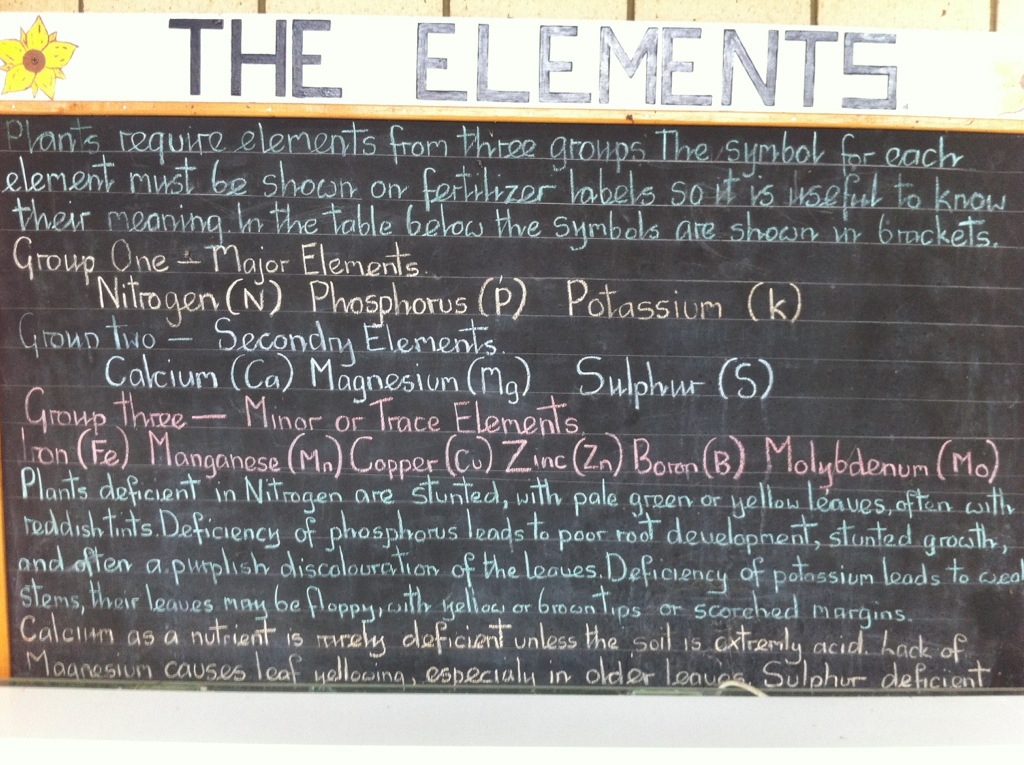 THE ELEMENTS
Plants require elements from three groups. The symbol for each
element must be shown on fertilizer labels so it is useful to know
their meaning. In the table below the symbols are shown in brackets.
Group One – Major Elements.
Nitrogen (N) Phosphorus (P) Potassium (K)
Group Two – Secondry Elements.
Calcium (Ca) Magnesium (Mg) Sulphur (S)
Group three – Minor or Trace Elements.
Iron (Fe) Manganese (Mn) Copper (Cu) Zinc (Zn) Boron (B) Molybdenum (Mo)
Plants deficient in Nitrogen are stunted, with pale green or yellow leaves, often with
reddish tints. Deficiency of phosphorus leads to poor root development, stunted growth,
and often a purplish discolouration of the leaves. Deficiency of potassium leads to weak
stems, their leaves may be floppy, with yellow or brown tips or scorched margins.
Calcium as a nutrient is rarely deficient unless the soil is extremly acid. Lack of
Magnesium causes leaf yellowing, especialy in older leaves. Sulphur deficient